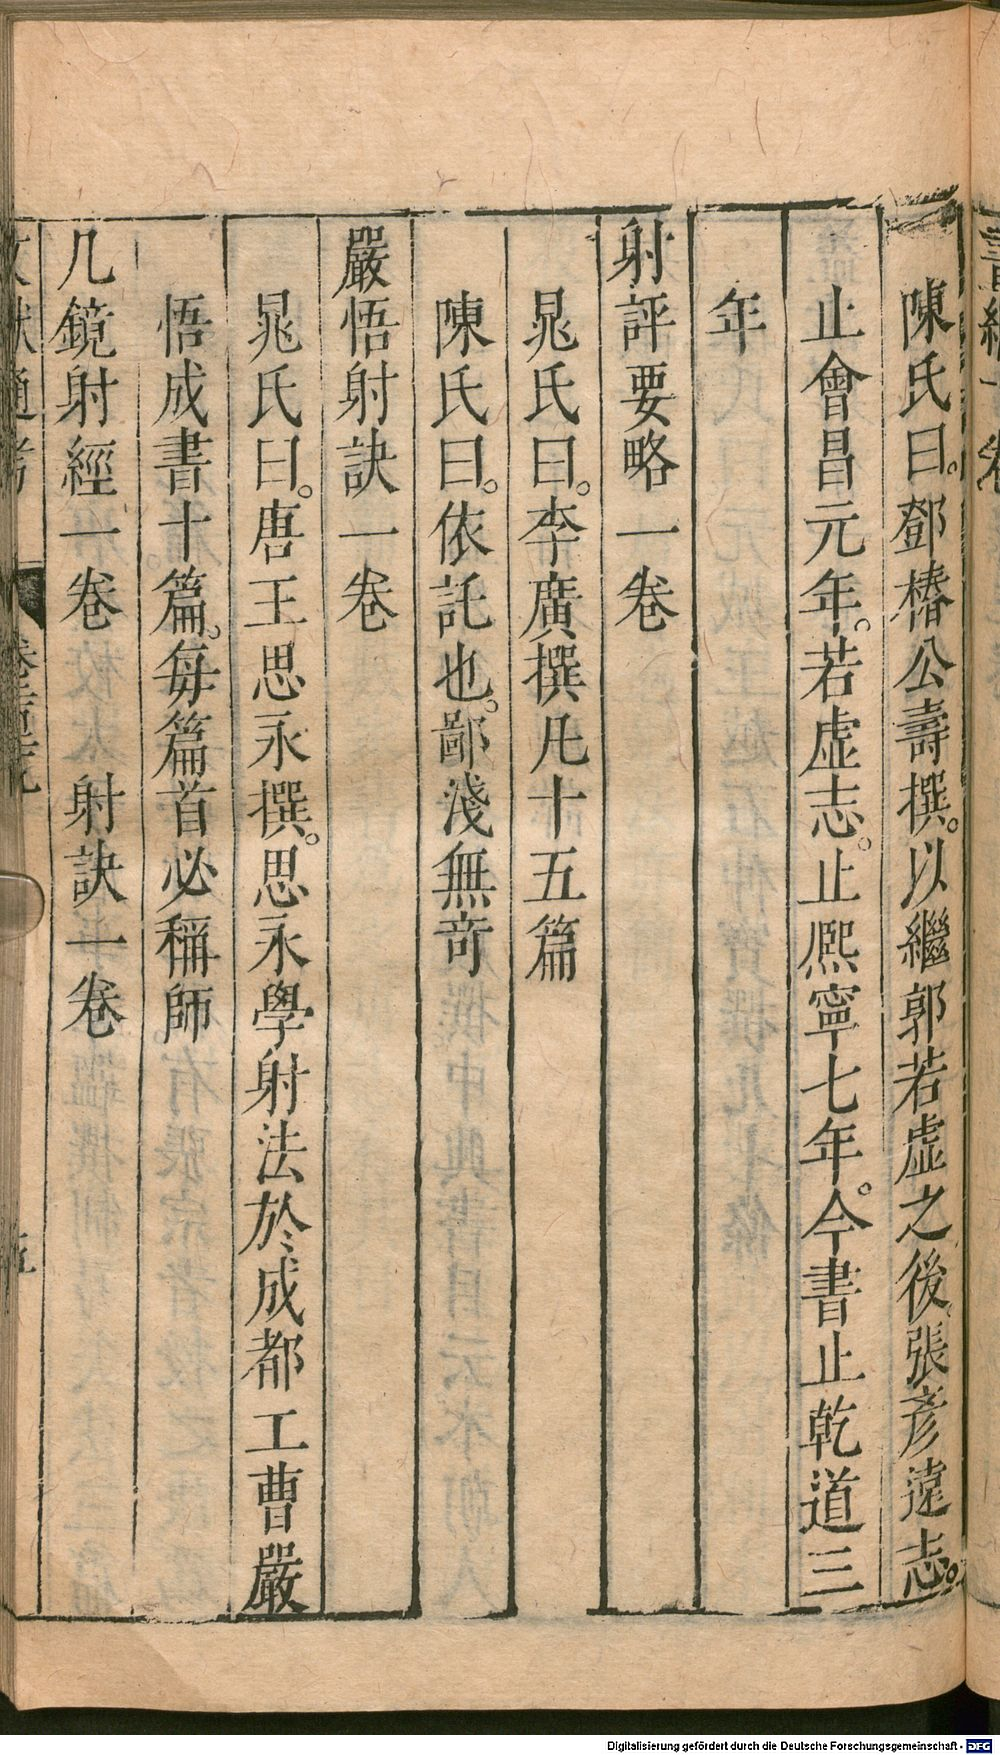 陳氏曰。鄧椿公壽撰。以繼郭若虛之後。張彥遠志。
止會昌元年。若虛志。止熈寧七年。今書止乾道三
年
射評要略一卷
晁氏曰。李廣撰凡十五篇
陳氏曰。依託也。鄙淺無竒
嚴悟射訣一卷
晁氏曰。唐王思永撰。思永學射法於成都工曹嚴
悟成書十篇。每篇首必稱師
几鏡射經一卷　射訣一卷
文獻通考
Digitalisierung gefördert durch die Deutsche Forschungsgemeinschaft - DFG